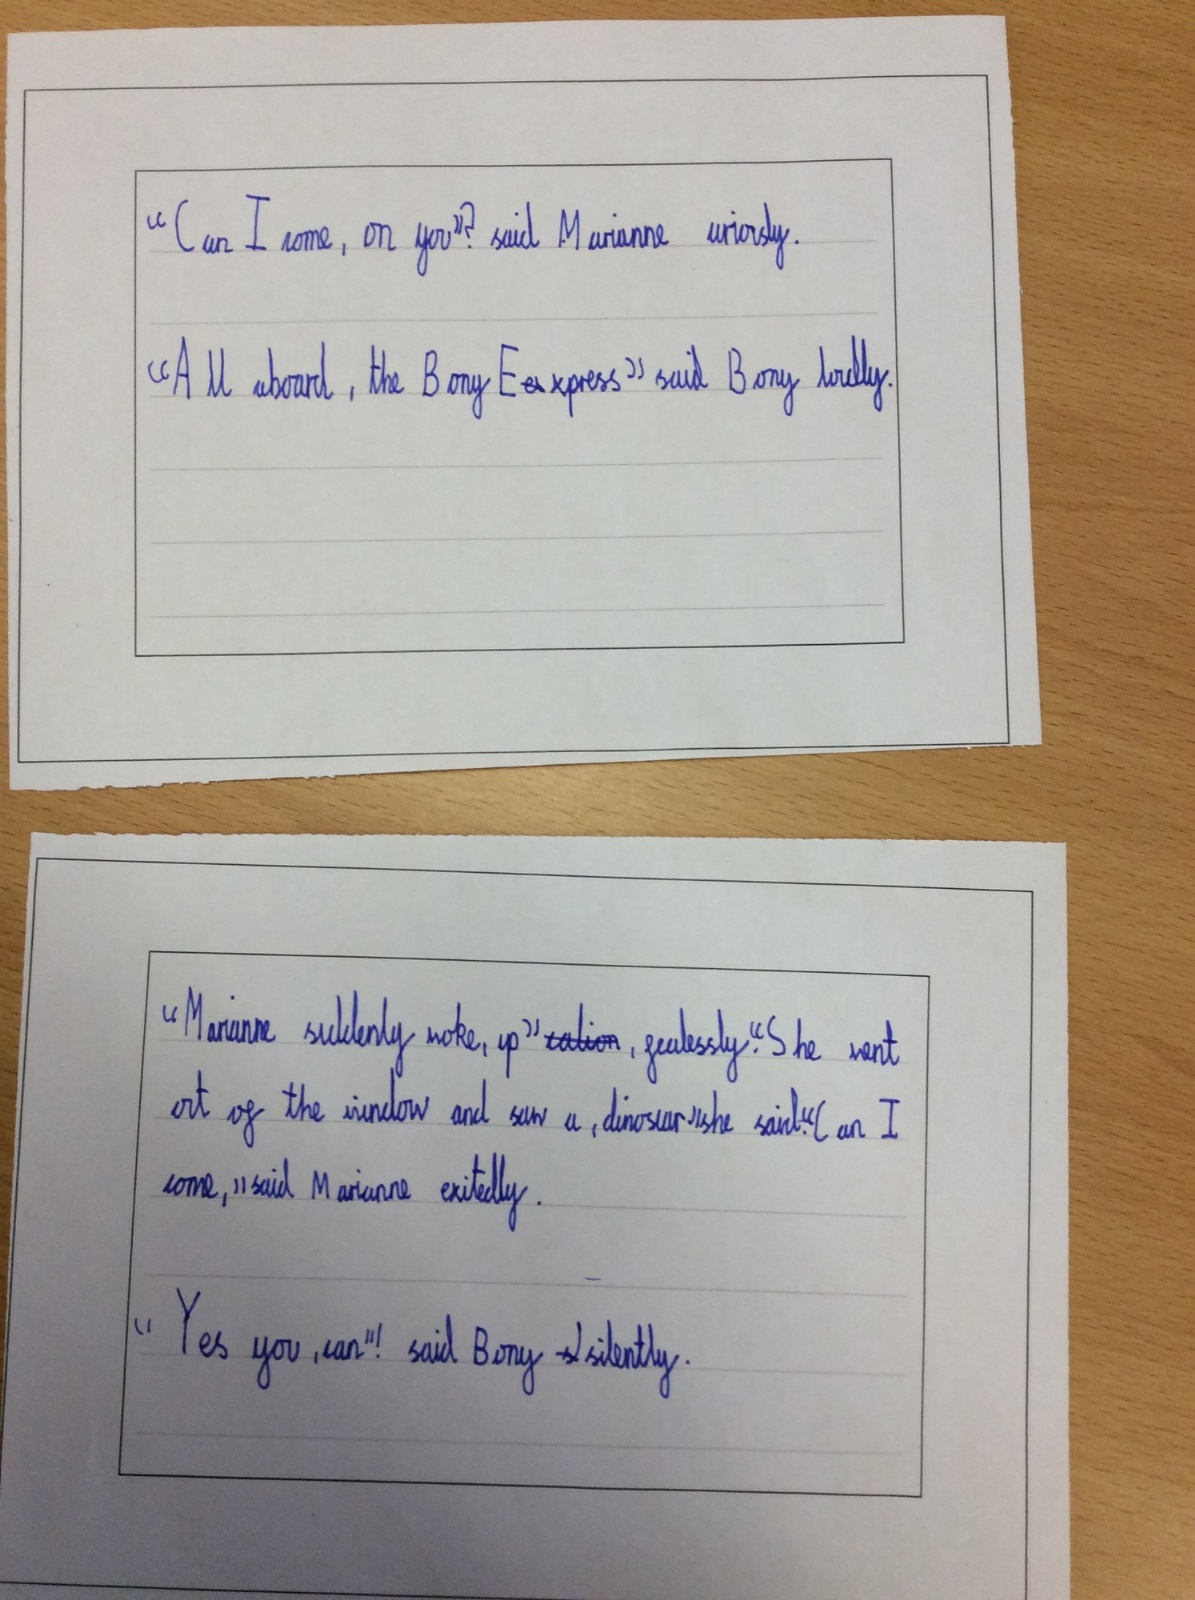 “Can I come, on you”? said Marianne uriously.
“All aboard, the Bony Express” said Bony lordly.
“Marianne suddenly woke, up” , fearlessly.“She went
ort of the window and saw a, dinosuar”she said.“Can I
come,” said Marianne exitedly.
“Yes you, can”! said Bony silently.